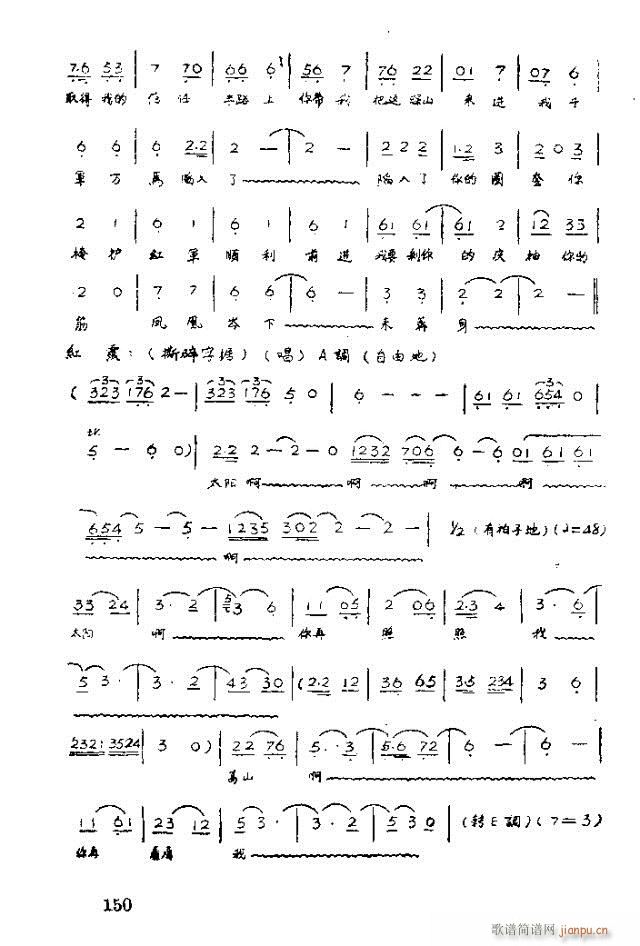 7·6 53 | 7 70 | 66 6 | 56 7 | 76 22 | 01 7 | 07 6
取得 我的 信任 来路上 你带我 把这 深山 来进 我千
6 6 | 6 2·2 | 2 — | 2 — | 2 2 2 | 1·2 3 | 2 0 3
军万马 陷入了 陷入了 你的圈套 你
2 1 | 6 1 | 6 1 | 6 1 | 61 61 | 61 2 | 12 33
掩护 红军 顺利 前进 我要剥你的皮 抽你的
2 0 | 7 7 | 6 6 | 6 — | 3 3 | 2 2 | 2 —
筋 凤凰岑下 来葬身
紅 霞:(撕碎字据)(唱)A調(自由地)
(323 176 2— | 323 176 5 0 | 6 — — — | 61 61 654 0
5 — 6 0) | 22 2 — 2 — 0 1232 706 6 — 6 01 61 61
太阳啊 啊 啊 啊
654 5 — 5 — 1235 302 2 — 2 — | ½(有拍子地)(♩=48)
啊
33 24 | 3· 2 | 5 3 6 | 11 05 | 2 06 | 2·3 4 | 3· 6
太阳 啊 你再 照 照 我
5 3· | 3· 2 | 43 30 | (2·2 12 | 36 65 | 35 234 | 3 6
2321 3524 | 3 0) | 22 76 | 5· 3 | 5·6 72 | 6 — | 6 —
高山 啊
11 61 | 23 12 | 5 3· | 3· 2 | 5 3 0 | (转E調)(7=3)
你再 看看 我
150
歌谱简谱网 jianpu.cn